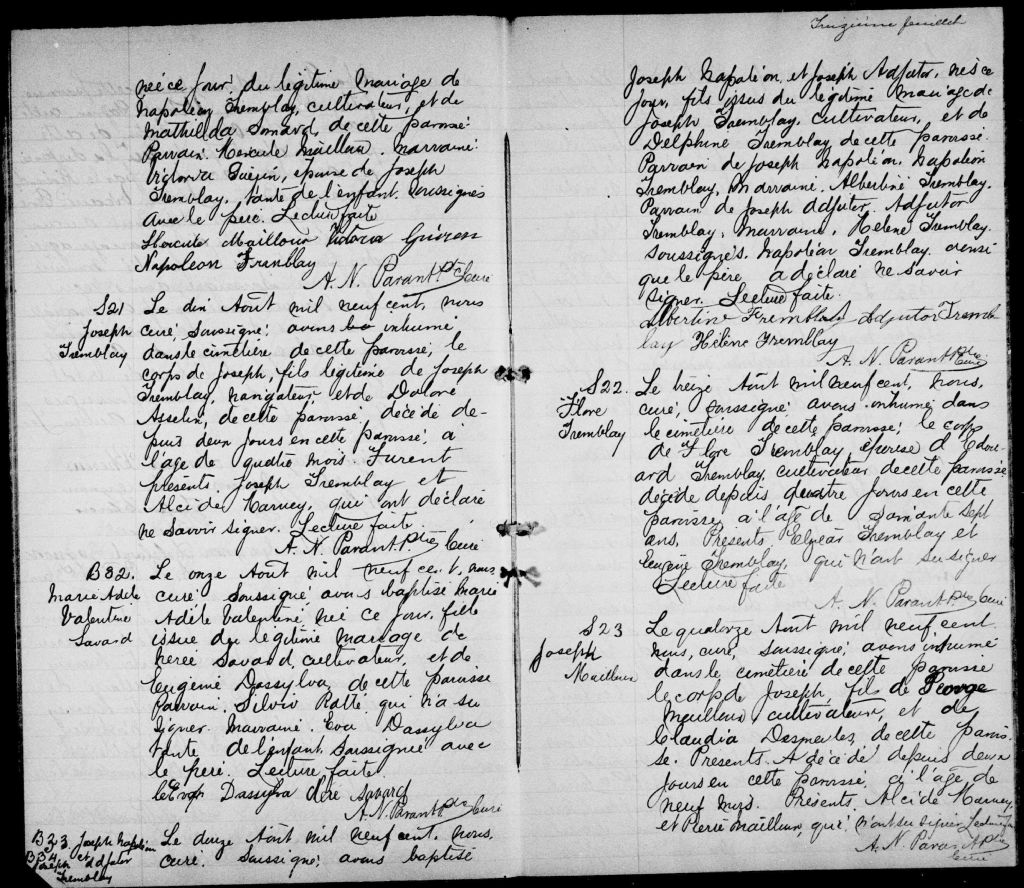 né ce jour, du légitime mariage de
Napoléon Tremblay, cultivateur, et de
Mathilda Simard, de cette paroisse
Parrain. Hercule Mailloux. Marraine.
Victoria Guérin, épouse de Joseph
Tremblay, tante de l'enfant. soussignés
avec le père. Lecture faite
Hercule Mailloux Victoria
Napoleon Tremblay
A. N. Parant Ptre Curé
S21
Joseph
Tremblay
Le dix Août mil neuf cent, nous
curé, soussigné, avons inhumé
dans le cimetière de cette paroisse, le
corps de Joseph, fils légitime de Joseph
Tremblay, navigateur, et de
Asselin, de cette paroisse, décédé de-
puis deux jours en cette paroisse, à
l'âge de quatre mois Furent
présents Joseph Tremblay et
Alcide Harvey, qui ont déclaré
ne savoir signer. Lecture faite.
A. N. Parant Ptre Curé
B32.
Marie Adèle
Valentine
Savard
Le onze Août mil neuf cent, nous
curé soussigné avons baptisé Marie
Adèle Valentine, née ce jour, fille
issue du légitime mariage de
Savard, cultivateur, et de
Eugénie Dassylva, de cette paroisse
Parrain, Silvio Ratté qui n'a su
signer. Marraine. Eva Dassylva
tante de l'enfant, soussignée avec
le père. Lecture faite.
Eva Dassylva Savard
A. N. Parant Ptre Curé
B33. Joseph Napoléon
B34 et Adjutor
Joseph
Tremblay
Le douze Août mil neuf cent, nous
curé, soussigné, avons baptisé
Treizième feuillet
Joseph Napoléon, et Joseph Adjutor, nés ce
jour, fils issus du légitime mariage de
Joseph Tremblay, cultivateur, et de
Delphine Tremblay de cette paroisse.
Parrain de Joseph Napoléon, Napoléon
Tremblay, Marraine, Albertine Tremblay.
Parrain de Joseph Adjutor. Adjutor
Tremblay, Marraine, Hélène Tremblay.
soussignés. Napoléon Tremblay
que le père a déclaré ne savoir
signer. Lecture faite.
Albertine Tremblay Adjutor Tremb
lay Hélène Tremblay
A. N. Parant Ptre Curé
S22.
Flore
Tremblay
Le treize Août mil neuf cent, nous,
curé, soussigné, avons inhumé dans
le cimetière de cette paroisse, le corps
de Flore Tremblay épouse d'Edou-
ard Tremblay, cultivateur de cette paroisse
décédée depuis quatre jours en cette
paroisse, à l'âge de soixante sept
ans. Présents Elzéar Tremblay et
Eugène Tremblay, qui n'ont su signer
Lecture faite
A. N. Parant Ptre Curé
S23
Joseph
Mailloux
Le quatorze Août mil neuf cent
nous, curé, soussigné, avons inhumé
dans le cimetière de cette paroisse
le corps de Joseph, fils de George
Mailloux cultivateur, et de
Claudia Desmeules, de cette parois-
se. Présents. décédé depuis deux
jours en cette paroisse, à l'âge de
neuf mois. Présents, Alcide Harvey,
et Pierre Mailloux, qui n'ont su signer Lecture
A. N. Parant Ptre
Curé